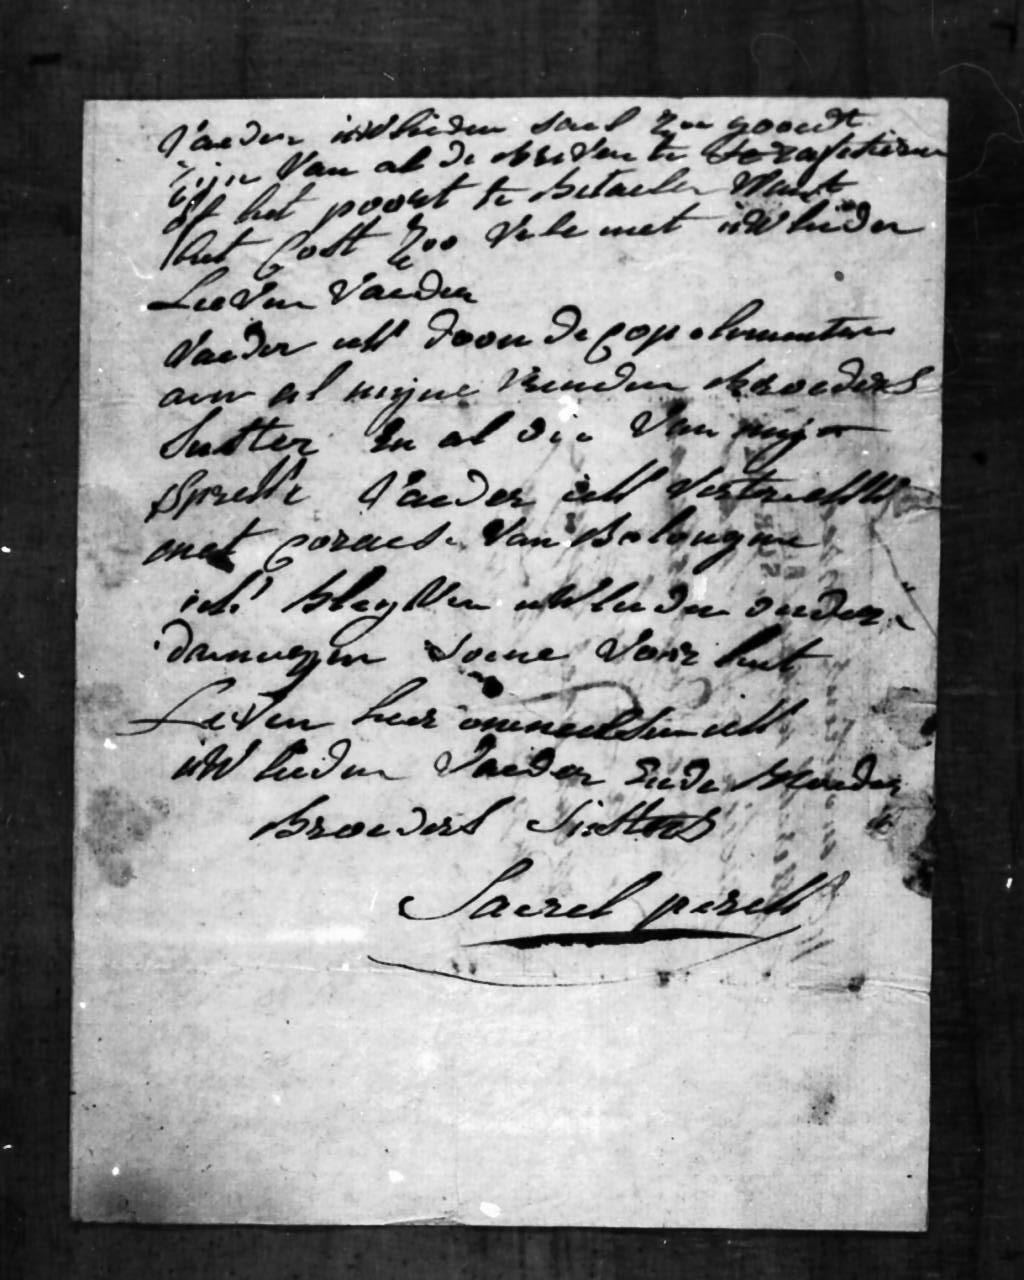 Vaeder uWlieden sael zoo goedt
zijn van al de brieven te
of het poort te betaelen Want
het Cost zoo vele met uWlieder
Lieven Vaeder
Vaeder ick doen de Complementen
aen al mijne vrinden broeders
Suster En al die van mij
sprekt Vaeder ick vertreckke
met Coraes van Bolougne
ick blyven uWlieden onder
daenegen Soene voor het
Leven hier ommeclesen ick
uWlieden Vaeder Ende Moeder
Broeders Susters
Saerel pereck